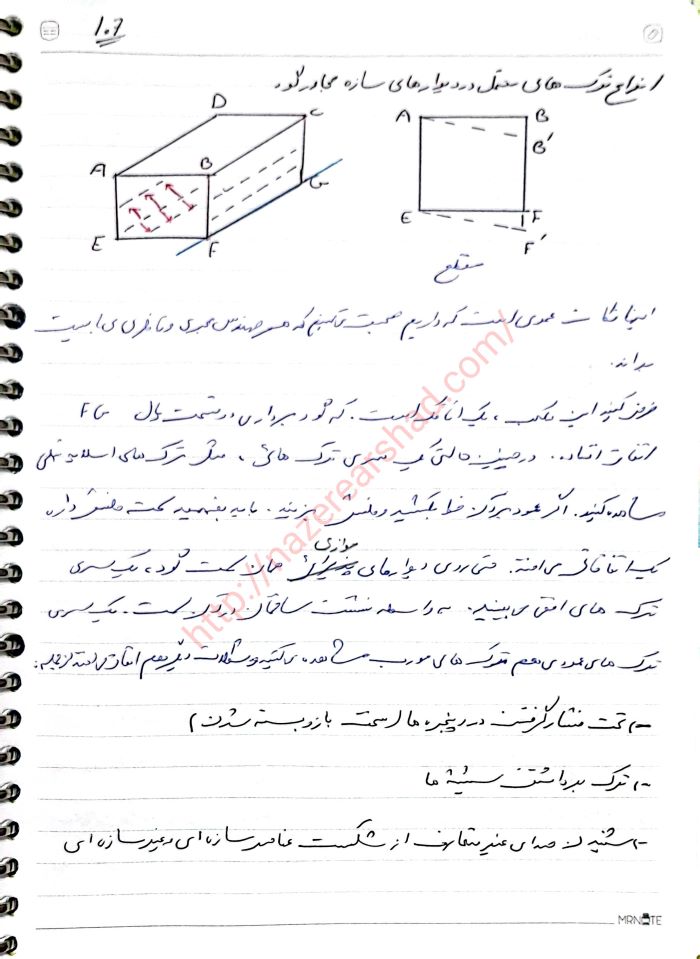 107
انواع ترک های محتمل در دیوارهای سازه مجاور گود
D C A B
A B B'
E F G
E F F'
مقطع
اینها نکات عمومی است که داریم صحبت میکنیم که هر مهندس مجری و ناظری می بایست
بداند.
فرض کنید این مکعب، یک اتاقک است. که گودبرداری در سمت یال FG
اتفاق افتاده. در چنین حالتی یک سری ترک هائی، مثل ترک های اسلاید قبلی
مشاهده کنید. اگر عمود بر ترک خط بکشید و فلش بزنید. باید بفهمید سمت فلش داره
یک اتفاقاتی می افتد. حتی روی دیوارهای موازی همان سمت گود، یک سری
ترک های افقی می بینید. به واسطه نشست ساختمان در آن سمت. یک سری
ترک های عمودی هم ترک های مورب مشاهده می کنید و مشکلات دیگر هم اتفاق می افتد از جمله:
-، تحت فشار گرفتن در و پنجره ها (سخت باز و بسته شدن)
-، ترک برداشتن شیشه ها
-، شنیدن صدای غیر متعارف از شکست عناصر سازه ای و غیر سازه ای
http://nazerearshad.com/
MRNOTE